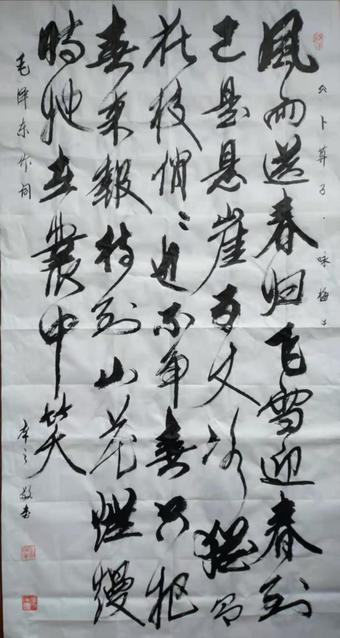 《卜算子·咏梅》
風雨送春归飞雪迎春到
已是悬崖百丈冰犹有
花枝俏〻也不争春只把
春来報待到山花烂漫
時她在叢中笑
毛泽东作词
敬书